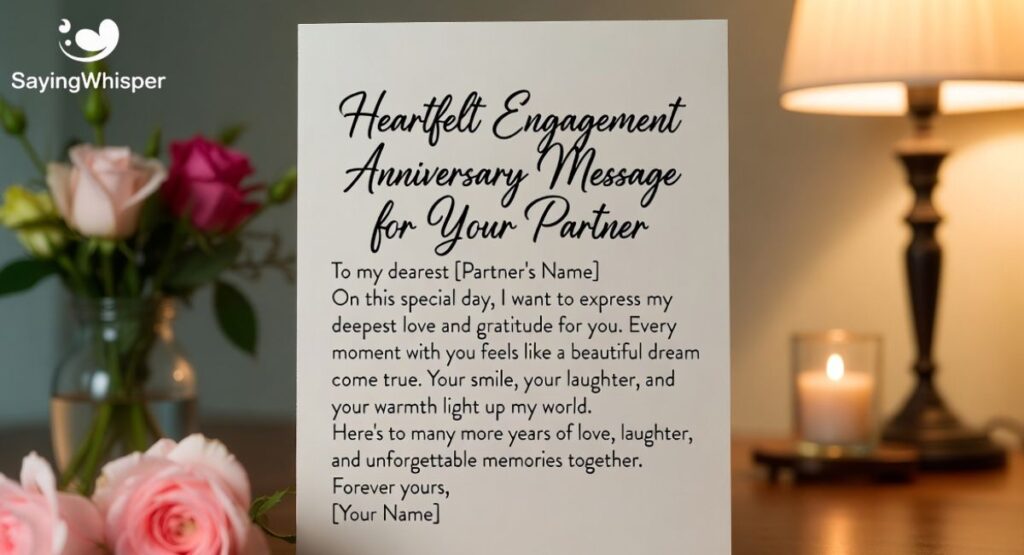 SayingWhisper
Heartfelt Engagement
Anniversary Message
for Your Partner
To my dearest [Partner's Name]
On this special day, I want to express my
deepest love and gratitude for you. Every
moment with you feels like a beautiful dream
come true. Your smile, your laughter, and
your warmth light up my world.
Here's to many more years of love, laughter,
and unforgettable memories together.
Forever yours,
[Your Name]